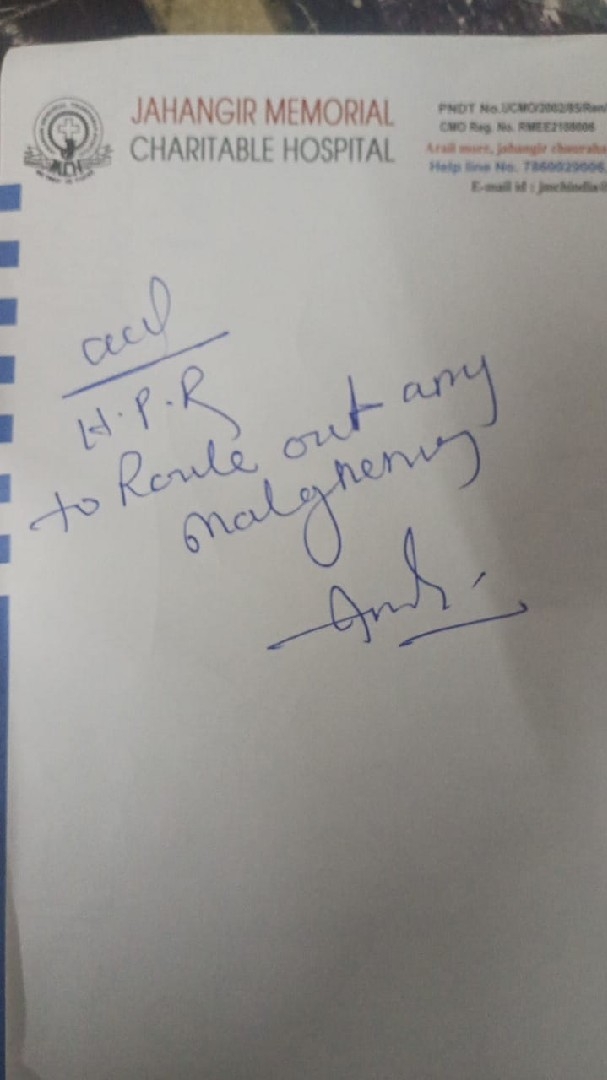 JAHANGIR MEMORIAL
CHARITABLE HOSPITAL
PNDT No.UCMO/2002/85/Ren
CMO Reg. No. RMEE2100006
Arail more, jahangir chauraha
Help line No. 7860029006,
E-mail id : jmchindia@
H.P.R
to Roule out any
malgneny